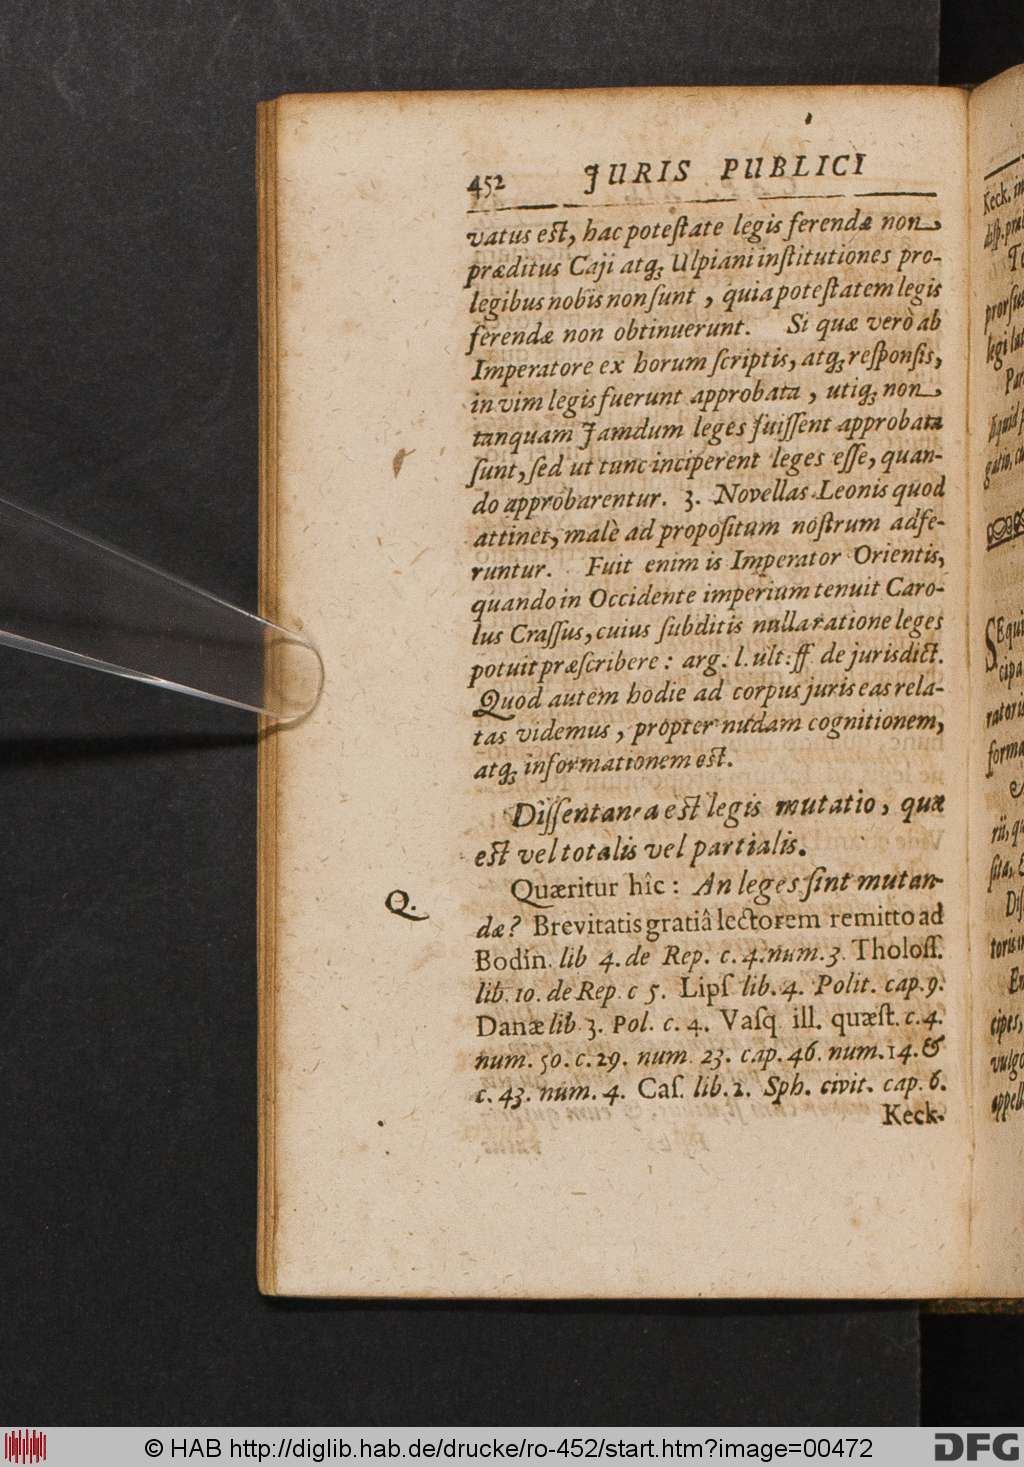 452 JURIS PUBLICI
vatus est, hac potestate legis ferendæ non
præditus Caji atq; Ulpiani institutiones pro-
legibus nobis non sunt, quia potestatem legis
ferendæ non obtinuerunt. Si quæ verò ab
Imperatore ex horum scriptis, atq; responsis,
in vim legis fuerunt approbata, utiq; non
tanquam Jamdum leges fuissent approbata
sunt, sed ut tunc inciperent leges esse, quan-
do approbarentur. 3. Novellas Leonis quod
attinet, malè ad propositum nostrum adfe-
runtur. Fuit enim is Imperator Orientis,
quando in Occidente imperium tenuit Caro-
lus Crassus, cuius subditis nulla ratione leges
potuit præscribere: arg. l. ult: ff. de jurisdict.
Quod autem hodie ad corpus juris eas rela-
tas videmus, propter nudam cognitionem,
atq; informationem est.
Dissentanea est legis mutatio, quæ
est vel totalis vel partialis.
Q. Quæritur hîc: An leges sint mutan-
dæ? Brevitatis gratiâ lectorem remitto ad
Bodin. lib 4. de Rep. c. 4. num. 3. Tholoss.
lib. 10. de Rep. c 5. Lips lib. 4. Polit. cap. 9.
Danæ lib 3. Pol. c. 4. Vasq. ill. quæst. c. 4.
num. 50. c. 29. num. 23. cap. 46. num. 14. &
c. 43. num. 4. Cas. lib. 2. Sph. civit. cap. 6.
Keck.
Keck. in
legi lat
SEqui
cipa
ratoris
forma
rii, q
toris
cipes,
vulgo
appell
© HAB http://diglib.hab.de/drucke/ro-452/start.htm?image=00472
DFG